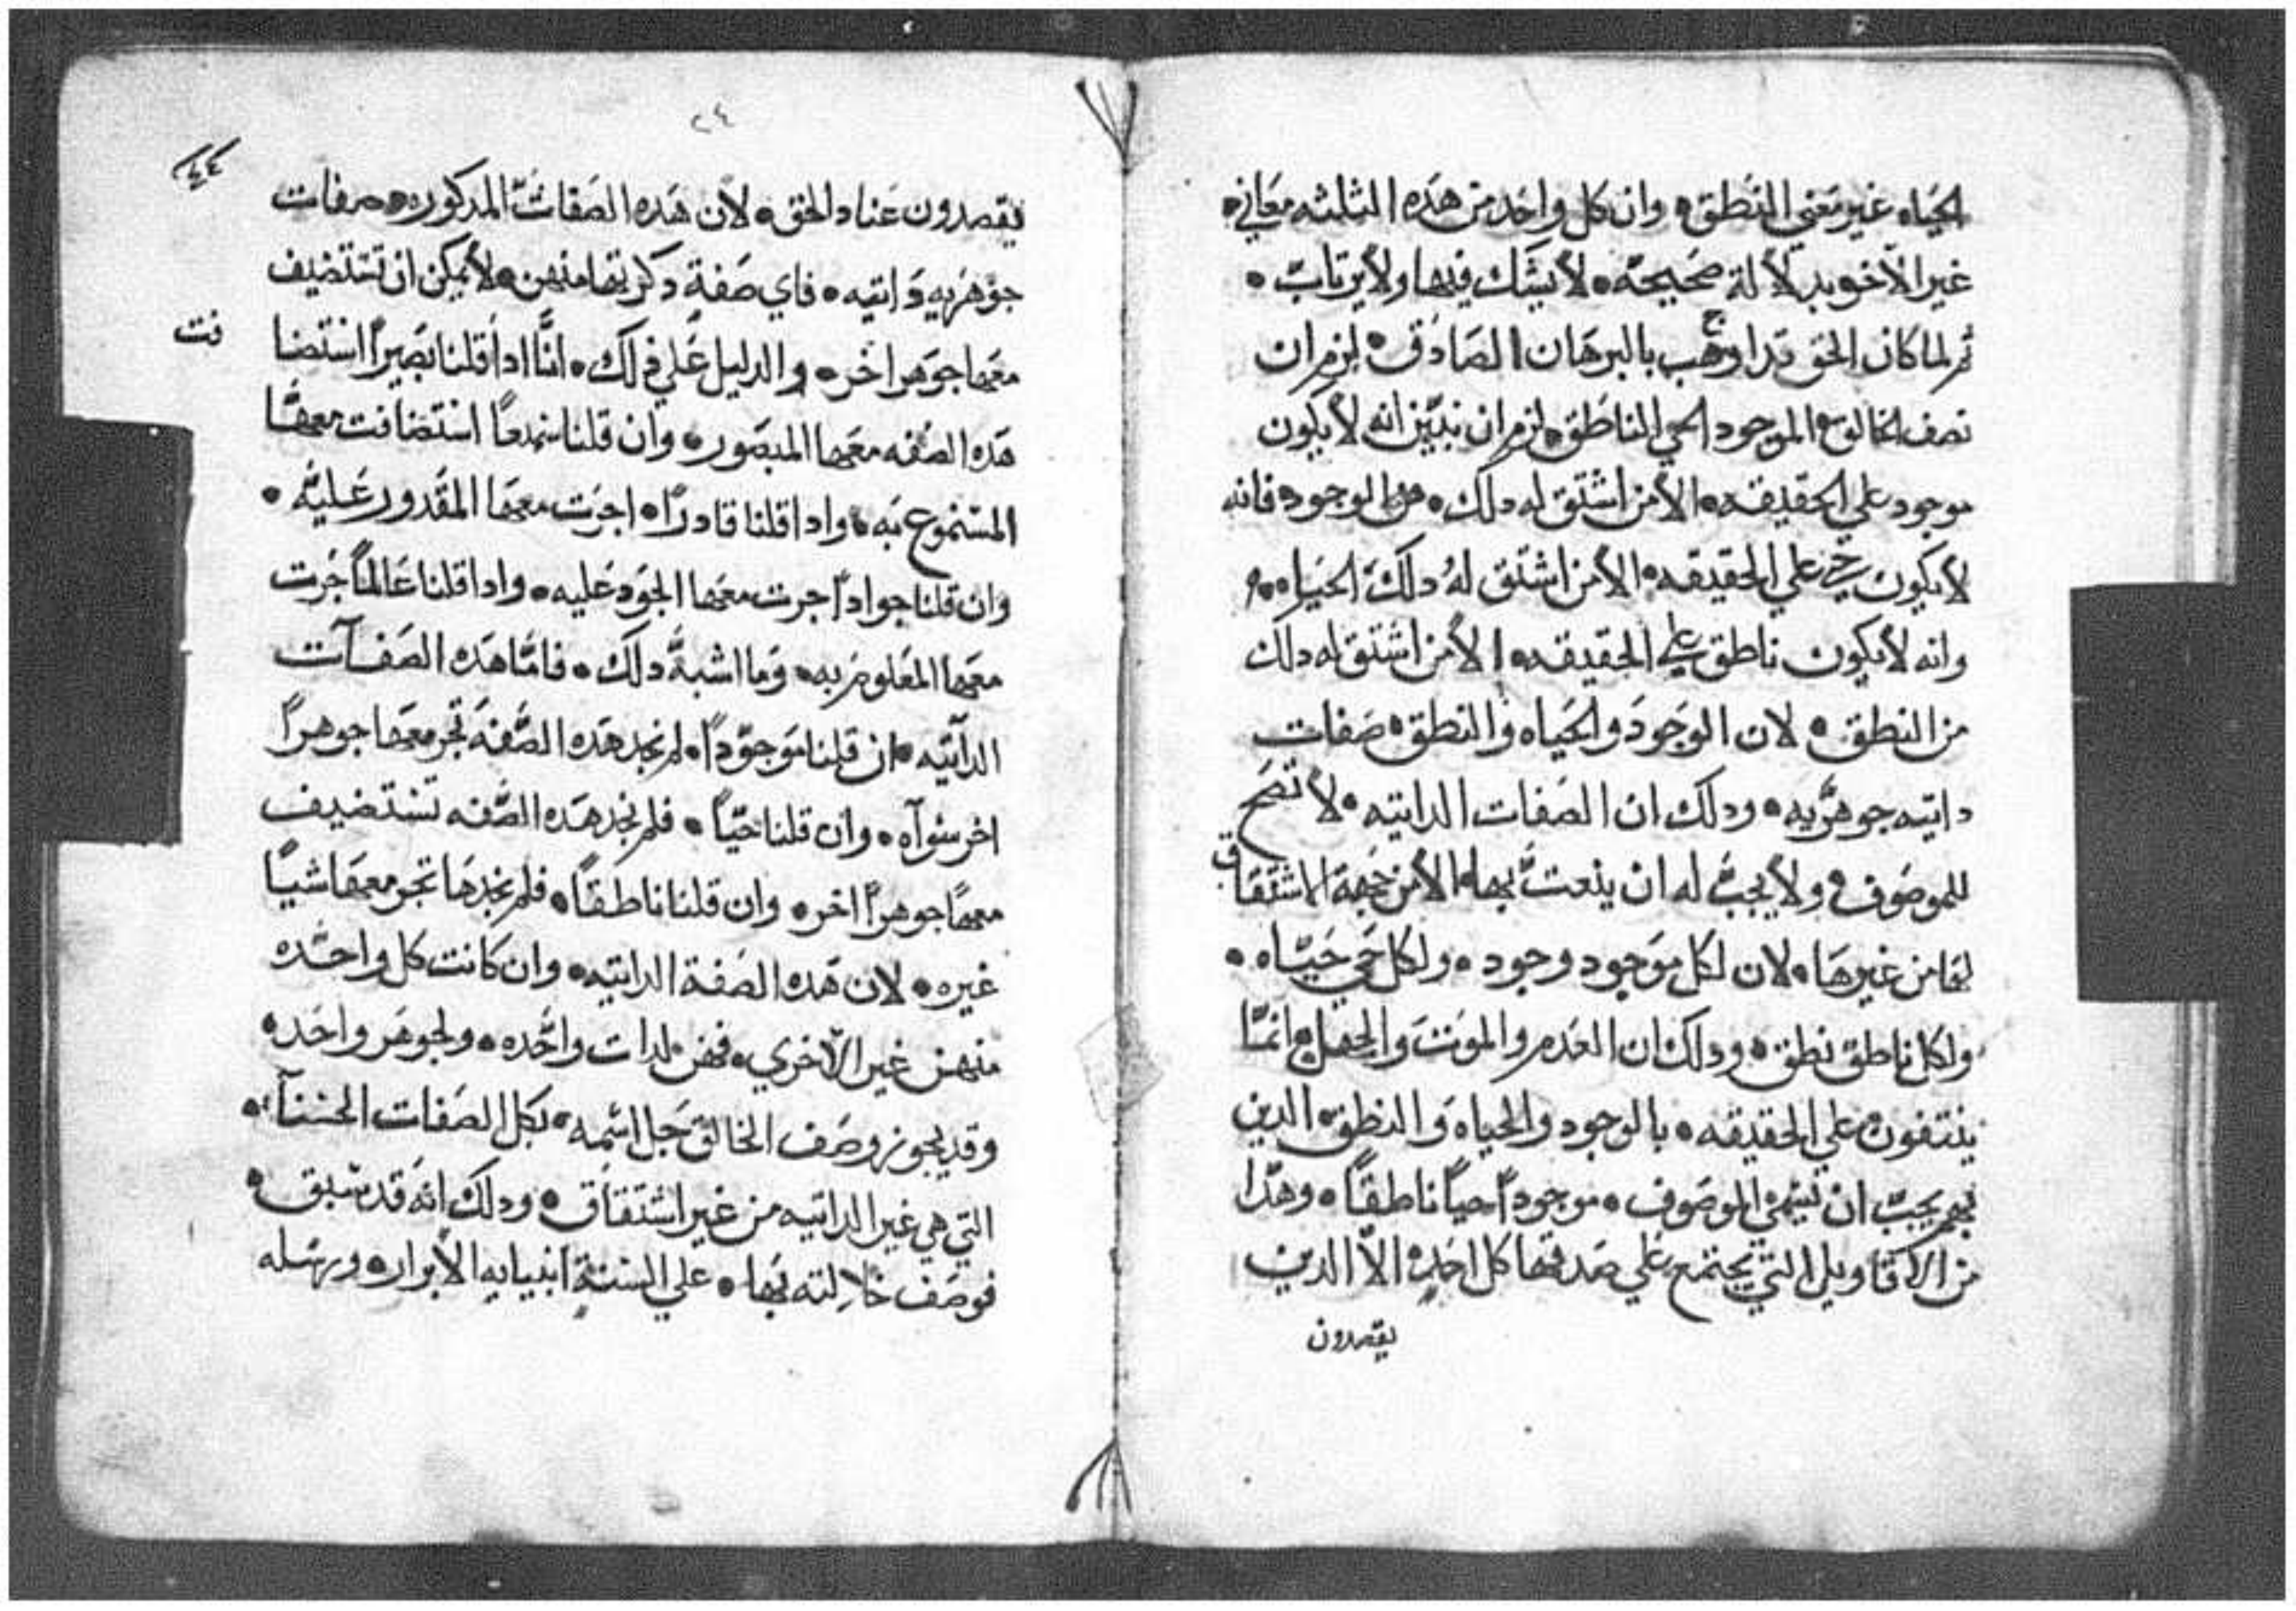 الحياه غير معني النطق • وان كل واحد من هده الثلثه معاني •
غير الاخر بدلالة صحيحه • لا يشك فيها ولا يرتاب •
ثم لما كان الحق قد اوجب بالبرهان الصادق • لزم ان
نصف الخالق الموجود الحي الناطق • لزم ان نبين انه لا يكون
موجود علي الحقيقه • الا من اشتق له دلك • من الوجود فانه
لا يكون حي علي الحقيقه • الا من اشتق له دلك الحياه •
وانه لا يكون ناطق علي الحقيقه • الا من اشتق له دلك
من النطق • لان الوجود والحياه والنطق • صفات
داتيه جوهريه • ودلك ان الصفات الداتيه • لا تصح
للموصوف • ولا يجب له ان ينعت بها • الا من جهة الاشتقاق
لها من غيرها • لان لكل موجود وجود • ولكل حي حياه •
ولكل ناطق نطق • ودلك ان العدم والموت والجهل انما
ينتفون علي الحقيقه • بالوجود والحياه والنطق • الدين
بهم يجب ان يسمي الموصوف • موجوداً حياً ناطقاً • وهدا
من الاقاويل التي يجتمع علي صدقها كل احد • الا الدين
يقصدون
٢٤
يقصدون عناد الحق • لان هده الصفات المدكوره • صفات
جوهريه داتيه • فاي صفة دكرتها منهن • لا يمكن ان تستضيف
معها جوهر اخر • والدليل علي دلك • انّا ادا قلنا بصيراً استضا
فت
هده الصفه معها المبصور • وان قلنا سميعاً استضافت معها
المسموع به • وادا قلنا قادراً • اجرت معها المقدور عليه •
وان قلنا جواداً جرت معها الجود عليه • وادا قلنا عالماً جرت
معها المعلوم به • وما اشبه دلك • فامّا هده الصفات
الداتيه • ان قلنا موجوداً • لم نجد هده الصفه تجر معها جوهراً
اخر سواه • وان قلنا حيّاً • فلم نجد هده الصفه تستضيف
معها جوهراً اخر • وان قلنا ناطقاً • فلم نجدها تجر معها شياً
غيره • لان هده الصفة الداتيه • وان كانت كل واحده
منهن غير الاخري • فهن لدات واحده • ولجوهر واحد •
وقد يجوز وصف الخالق جل اسمه • بكل الصفات الحسنا •
التي هي غير الداتيه من غير اشتقاق • ودلك انه قد سبق •
فوصف بها • علي السنة انبيايه الابرار • ورسله